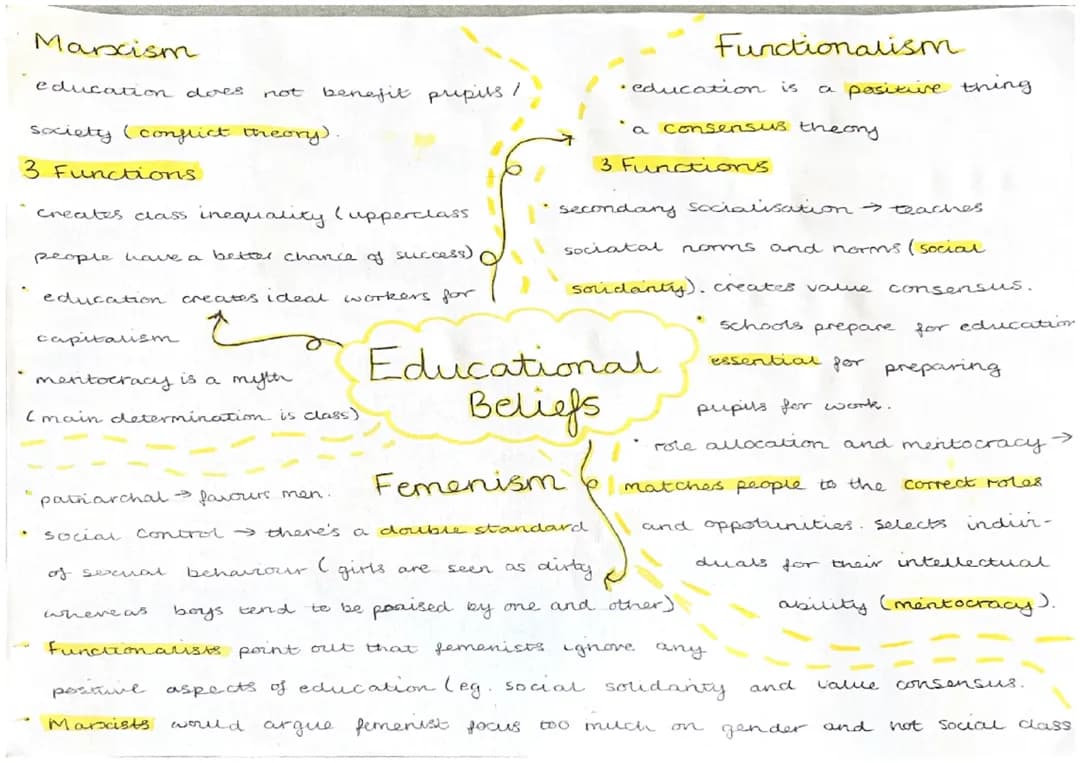 Marxism
education does not benefit pupils /
society (conflict theory).
3 Functions
creates class inequality (upperclass
people have a better chance of success)
education creates ideal workers for
capitalism
meritocracy is a myth
(main determination is class)
Functionalism
education is a positive thing
a consensus theory
3 Functions
secondary socialisation → teaches
sociatal norms and norms (social
solidarity). creates value consensus.
schools prepare for education
essential for preparing
pupils for work.
role allocation and meritocracy →
matches people to the correct roles
and oppotunities. Selects indivi-
duals for their intellectual
ability (meritocracy).
Educational
Beliefs
Femenism
patriarchal → favours men.
social control → there's a double standard
of sexual behaviour (girls are seen as dirty
whereas boys tend to be praised by one and other)
Functionalists point out that femenists ignore any
positive aspects of education (eg. social solidarity and value consensus.
Marxists would argue femenist focus too much on gender and not social class